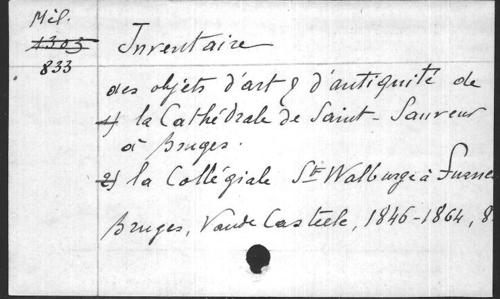 Mél.
1303
833
Inventaire
des objets d'art & d'antiquité de
1) la Cathédrale de Saint-Sauveur
à Bruges.
2) la Collégiale Ste Walburge à Furnes
Bruges, Vande Casteele, 1846-1864, 8